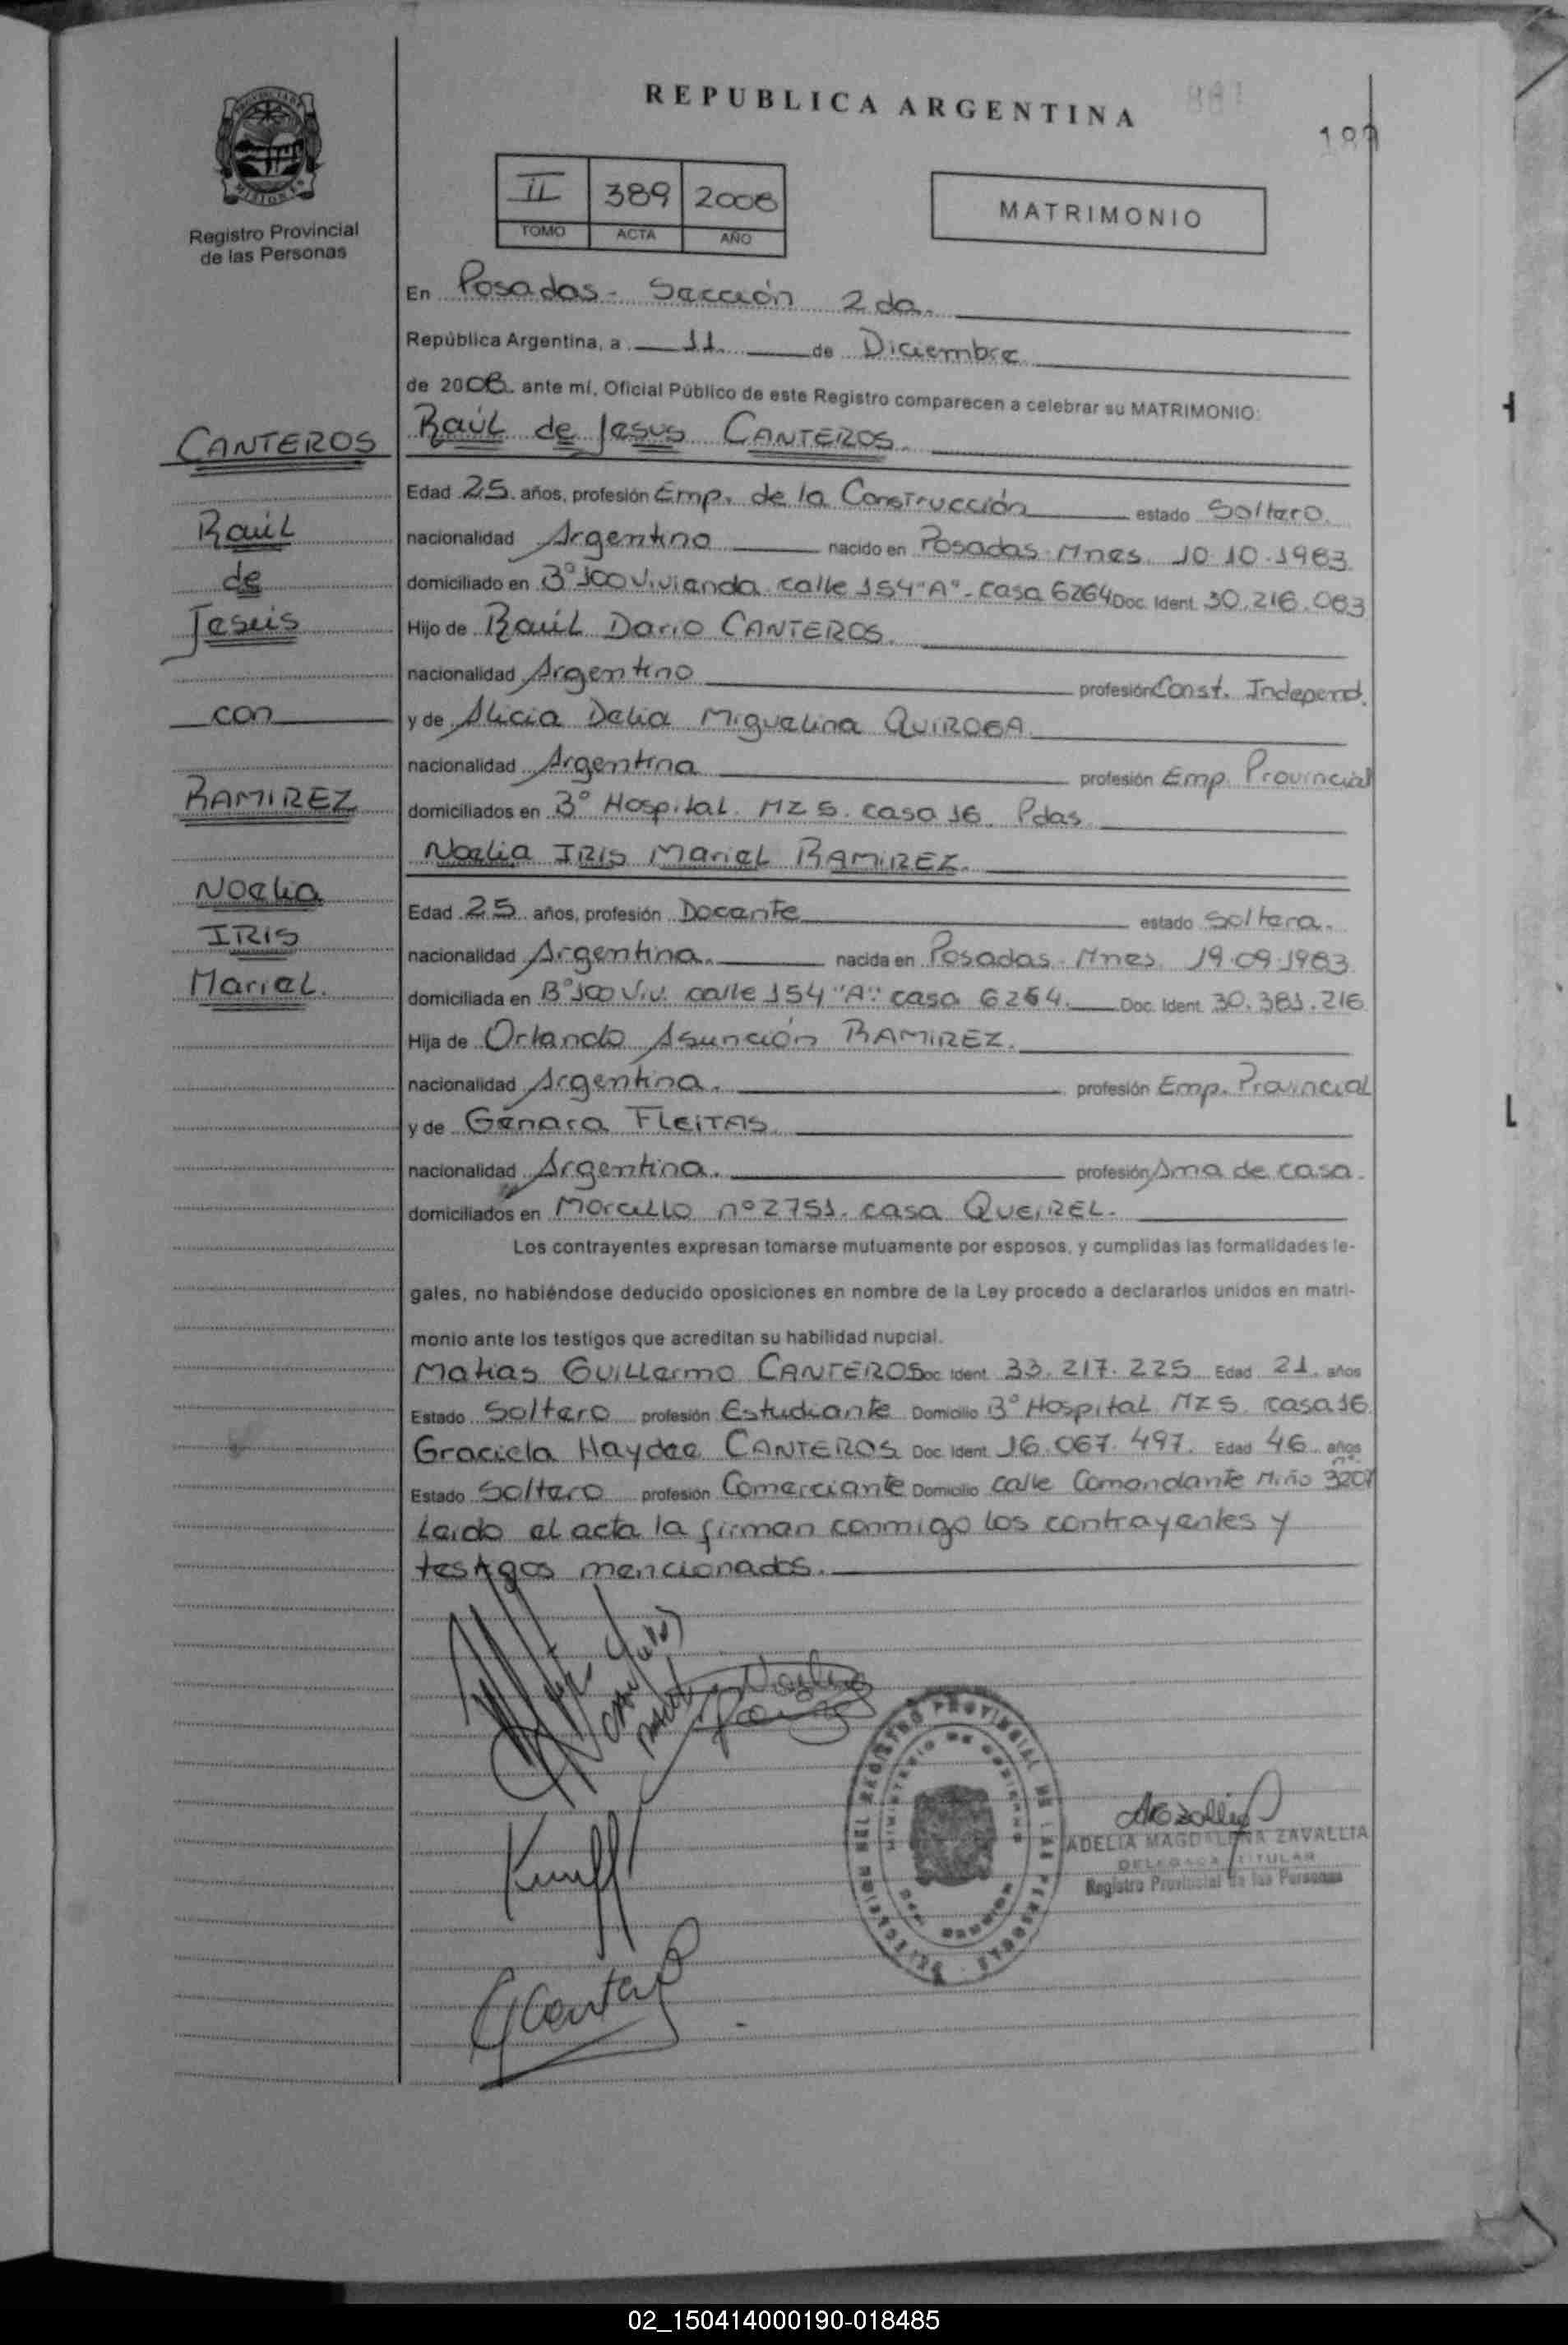 REPUBLICA ARGENTINA
PROVINCIA DE
MISIONES
Registro Provincial
de las Personas
II 389 2008
TOMO ACTA AÑO
MATRIMONIO
En Posadas - Sección 2 da.
República Argentina, a 11 de Diciembre
de 2008 ante mí, Oficial Público de este Registro comparecen a celebrar su MATRIMONIO:
CANTEROS
Raúl
de
Jesús
con
RAMIREZ
Noelia
IRIS
Mariel.
Raúl de Jesus CANTEROS.
Edad 25 años, profesión Emp. de la Construcción estado Soltero.
nacionalidad Argentino nacido en Posadas-Mnes 10.10.1983
domiciliado en B° 100 Vivienda calle 154 "A" - casa 6264 Doc. Ident. 30.216.083
Hijo de Raúl Dario CANTEROS.
nacionalidad Argentino profesión Const. Independ.
y de Alicia Delia Miguelina QUIROGA
nacionalidad Argentina profesión Emp. Provincial
domiciliados en B° Hospital. Mz 5. casa 16 Pdas
Noelia IRIS Mariel RAMIREZ.
Edad 25 años, profesión Docente estado Soltera.
nacionalidad Argentina. nacida en Posadas-Mnes 19.09.1983
domiciliada en B° 100 Viv. calle 154 "A" casa 6264. Doc. Ident. 30.381.216
Hija de Orlando Asunción RAMIREZ.
nacionalidad Argentina. profesión Emp. Provincial
y de Genara FLEITAS
nacionalidad Argentina. profesión Ama de casa.
domiciliados en Morcillo n° 2751. casa QUEIREL.
Los contrayentes expresan tomarse mutuamente por esposos, y cumplidas las formalidades le-
gales, no habiéndose deducido oposiciones en nombre de la Ley procedo a declararlos unidos en matri-
monio ante los testigos que acreditan su habilidad nupcial.
Matias Guillermo CANTEROS Doc. Ident. 33.217.225 Edad 21 años
Estado Soltero profesión Estudiante Domicilio B° Hospital Mz 5. casa 16
Graciela Haydee CANTEROS Doc. Ident. 16.067.497. Edad 46 años
Estado Soltero profesión Comerciante Domicilio calle Comandante Miño n° 3207
Leido el acta la firman conmigo los contrayentes y
testigos mencionados.
ADELIA MAGDALENA ZAVALLIA
DELEGADA TITULAR
Registro Provincial de las Personas
02_150414000190-018485